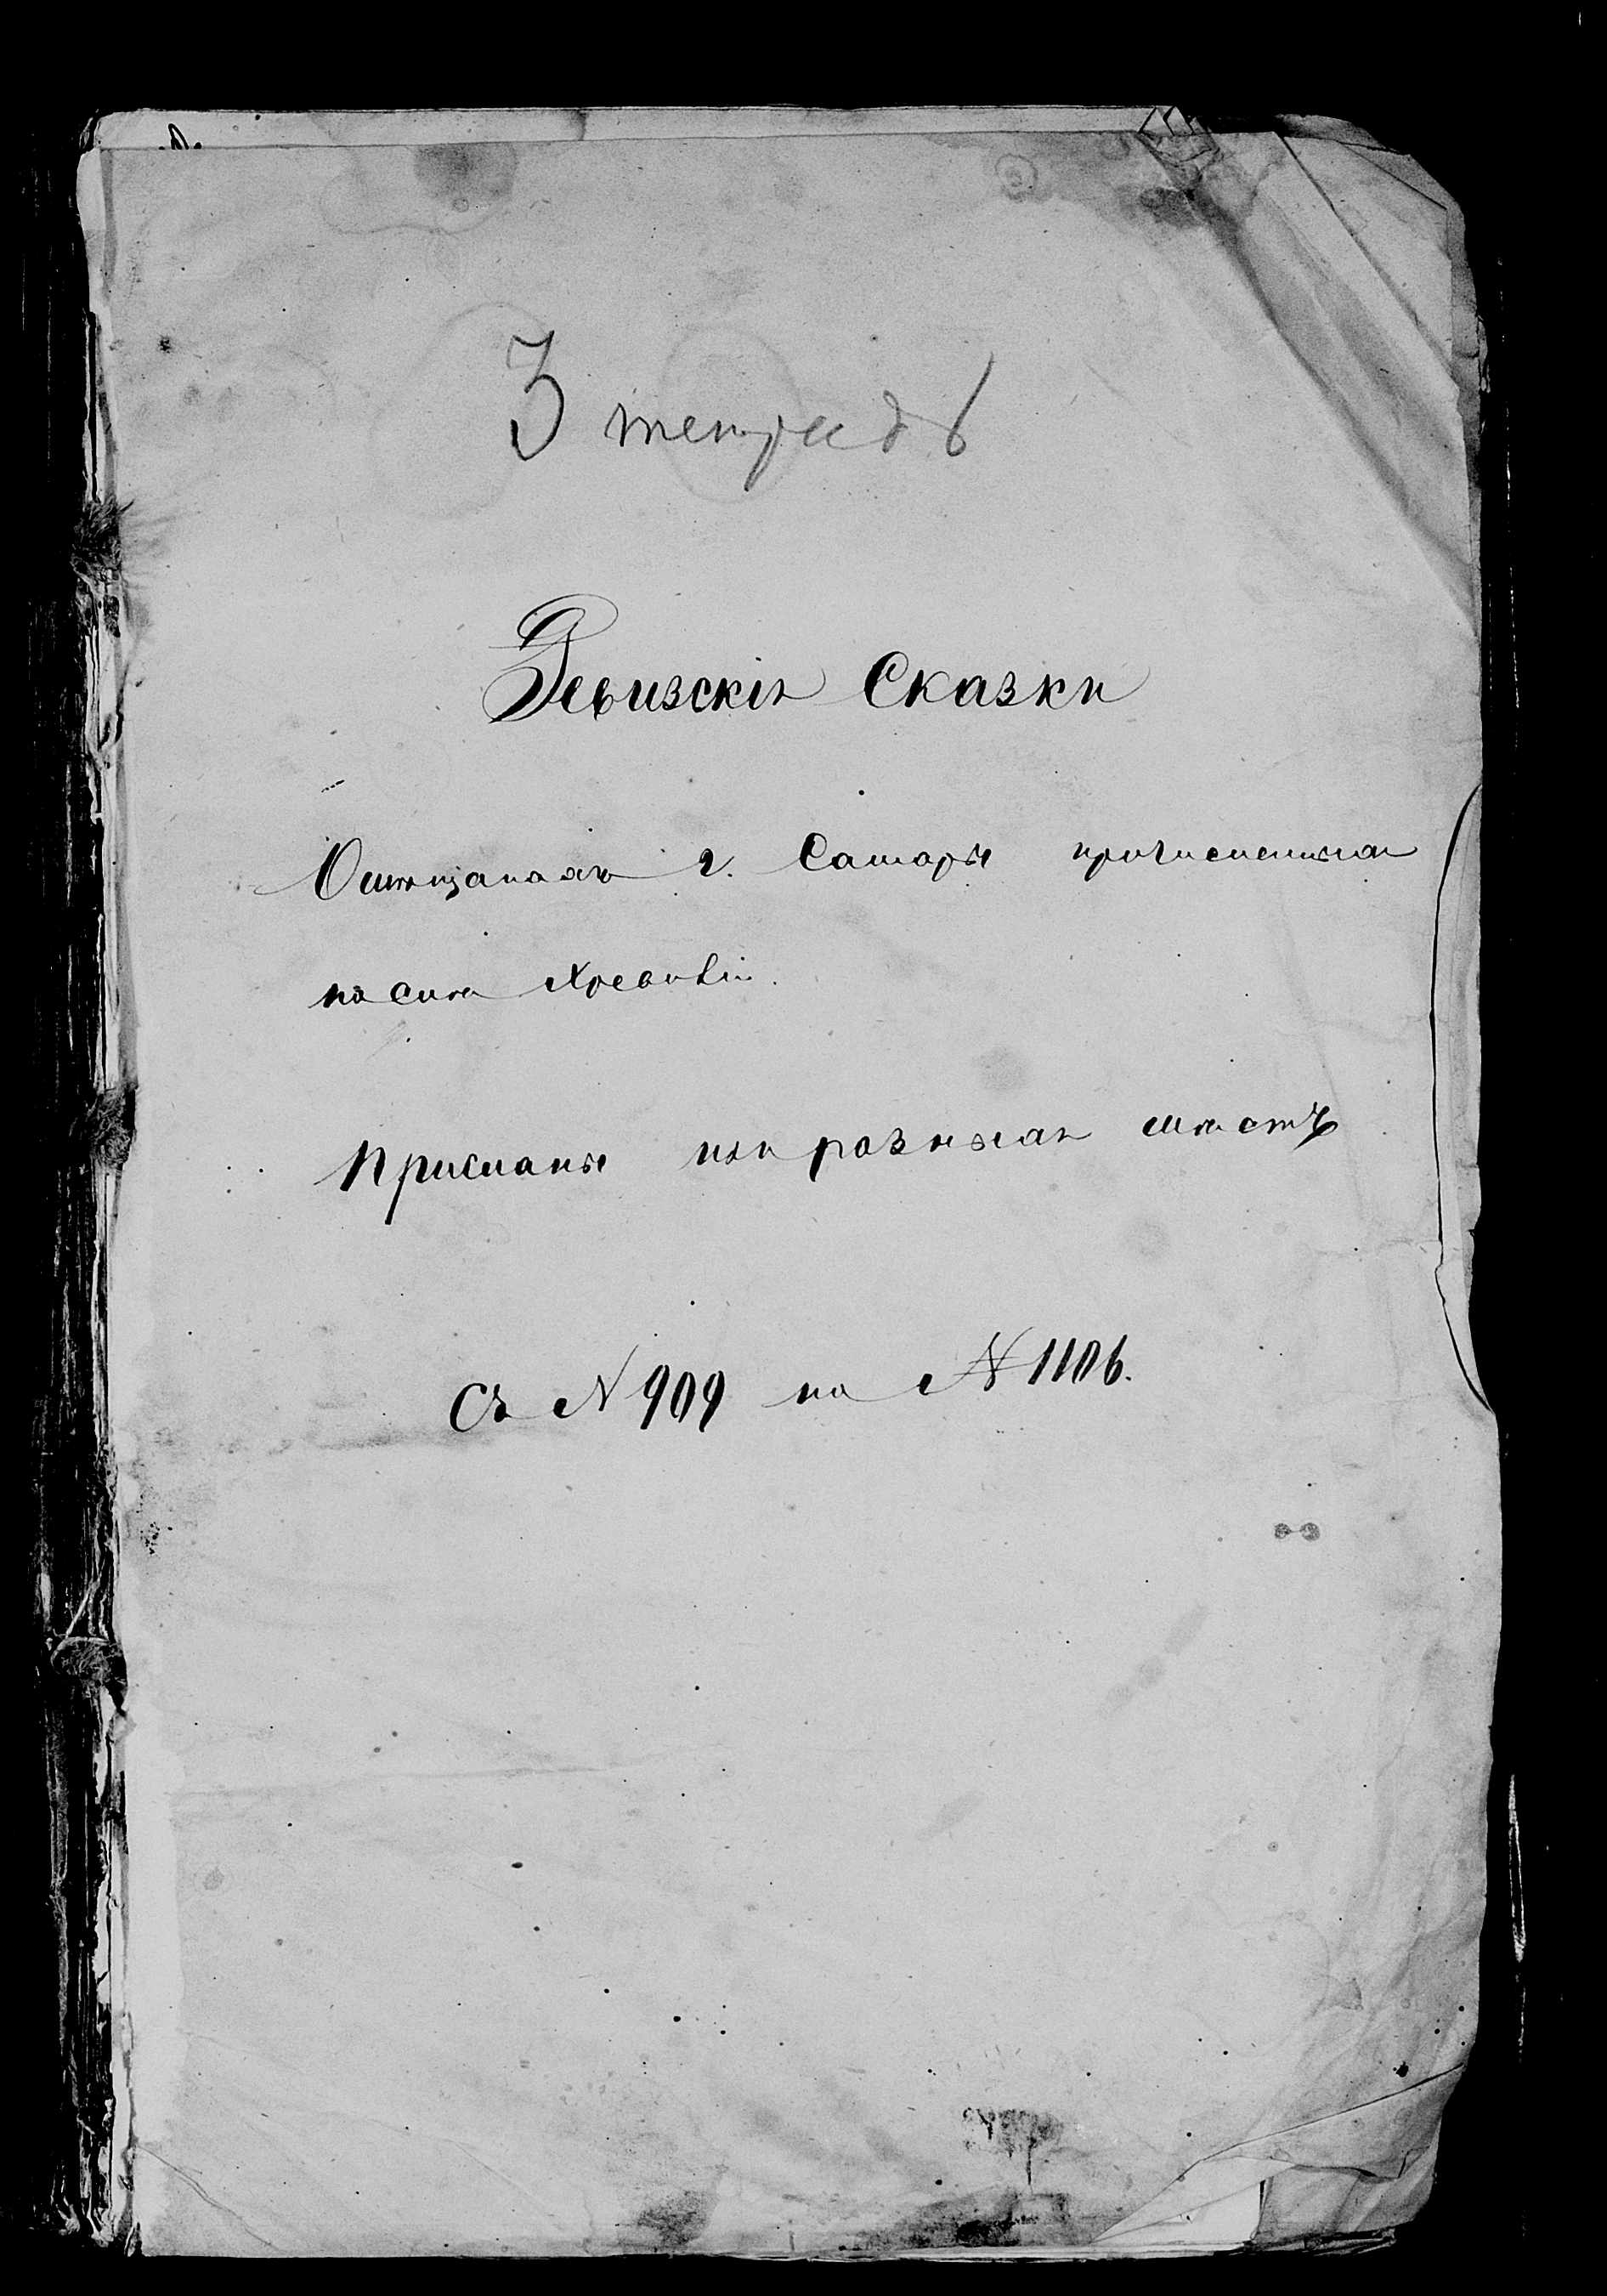 3 тетрадь
Ревизскія Сказки
О мѣщанахъ г. Самары причисленныхъ
после X ревизіи.
Присланы изъ разныхъ мѣстъ
Съ № 909 по № 1106.